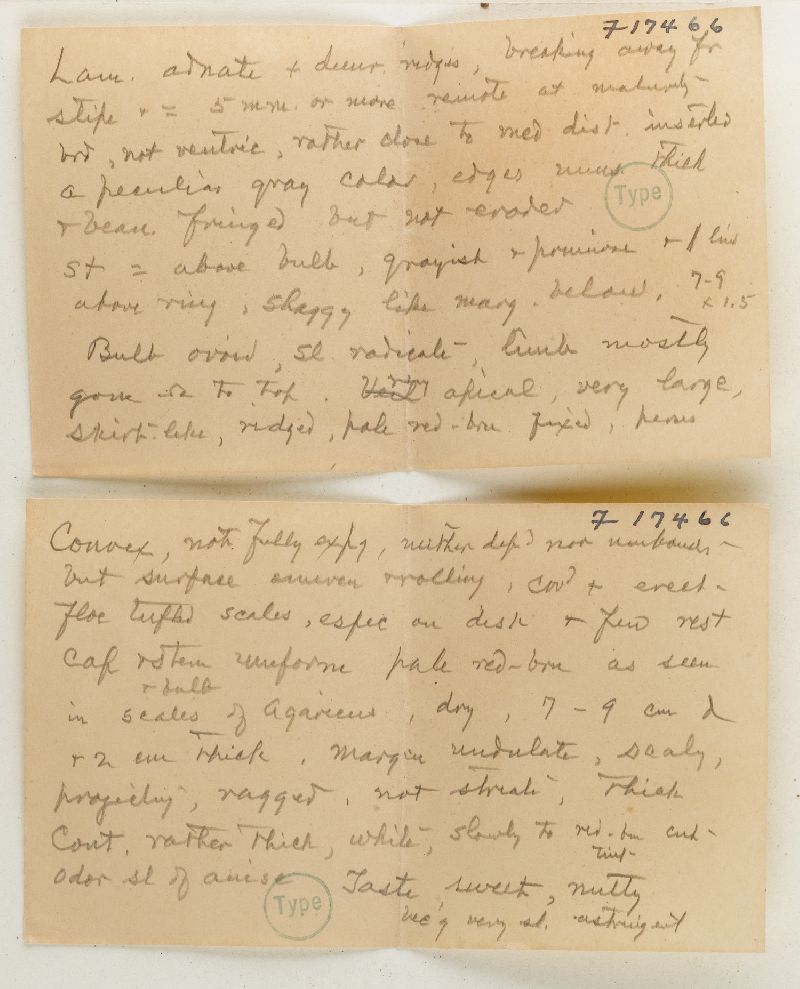 F 17466
Lam. adnate + decur. ridges, breaking away fr
stipe + = 5 mm. or more remote at maturity
brd, not ventric, rather close to med dist. inserted
a peculiar gray color, edges thick
Type
+ beau. fringed but not eroded
st = above bulb, grayish + pruinose + lin
above ring, shaggy like marg. below, 7-9
x 1.5
Bulb ovoid, sl. radicate, limb mostly
gone to top. Veil ring apical, very large,
skirt-like, ridged, pale red-brn fixed, persis
F 17466
Convex, not fully expg, neither depd nor umbonate
but surface uneven + rolling, covd + erect-
floc tufted scales, espec on disk + few rest
Cap + stem uniform pale red-brn as seen
+ bulb
in scales of Agaricus, dry, 7-9 cm d
+ 2 cm thick. margin undulate, scaly,
projecting, ragged, not striate, thick
Cont. rather thick, white, slowly to red-brn cut-
tint-
odor sl of anise Taste sweet, nutty
Type
bec'g very sl. astringent